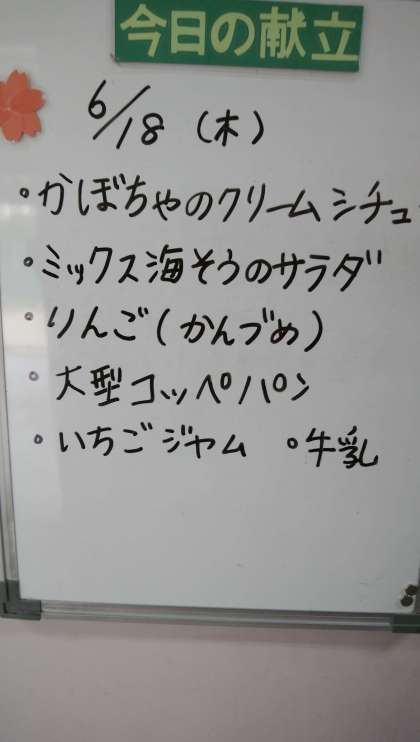 今日の献立
6/18 (木)
・かぼちゃのクリームシチュ
・ミックス海そうのサラダ
・りんご(かんづめ)
・大型コッペパン
・いちごジャム ・牛乳